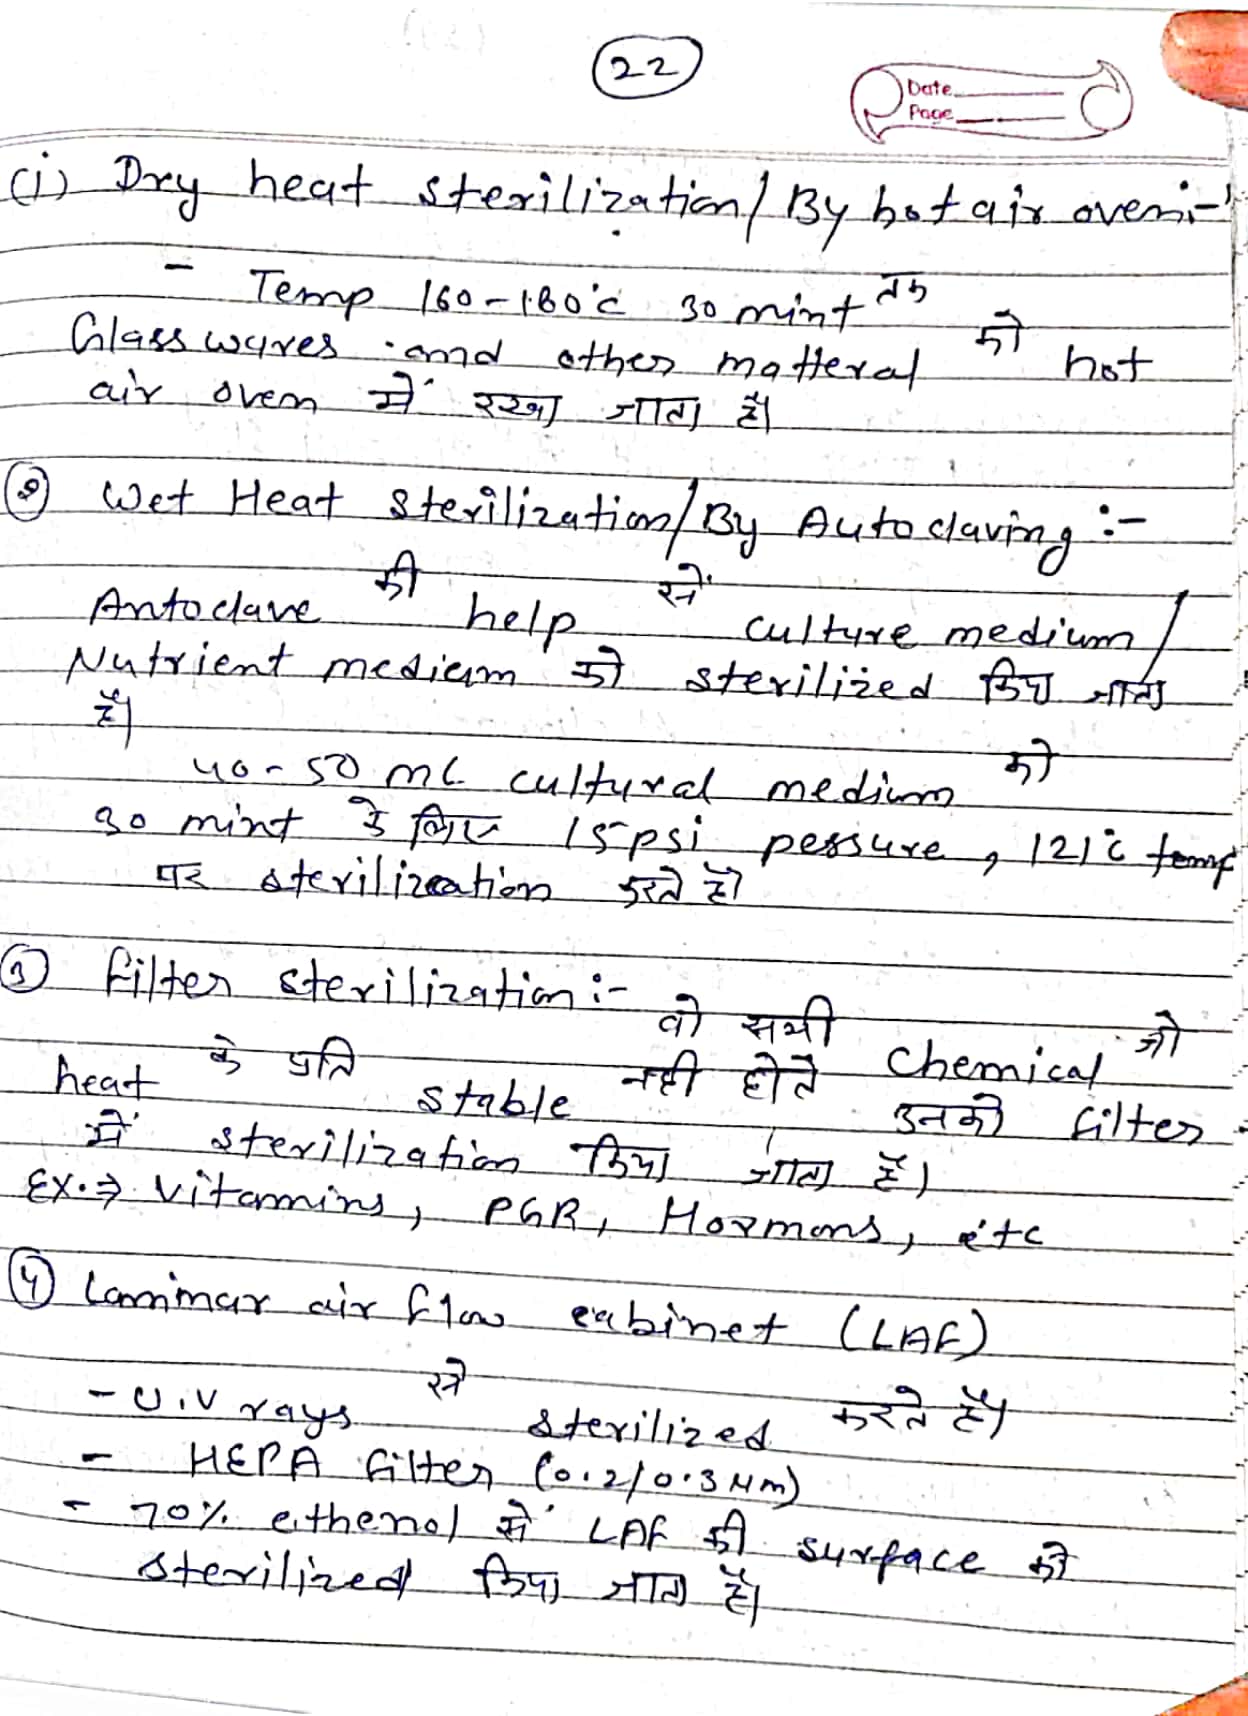 22
Date
Page
(i) Dry heat sterilization/By hot air oven:-
- Temp 160-180°c 30 mint तक
Glasswares and other matteral को hot
air oven में रखा जाता है।
② Wet Heat sterilization/By Autoclaving :-
Autoclave की help से culture medium/
Nutrient medium को sterilized किया जाता
है।
40-50 mL cultural medium को
30 mint के लिए 15psi pessure, 121°c temp
पर sterilization करते है।
③ filter sterilization :-
वो सभी chemical जो
heat के प्रति stable नही होते उनको filter
में sterilization किया जाता है।
Ex.⇒ vitamins, PGR, Hormons, etc
④ Laminar air flow cabinet (LAF)
- U.V rays से sterilized करते हैं।
- HEPA filter (0.2/0.3 μm)
- 70% ethenol से LAF की surface को
sterilized किया जाता है।